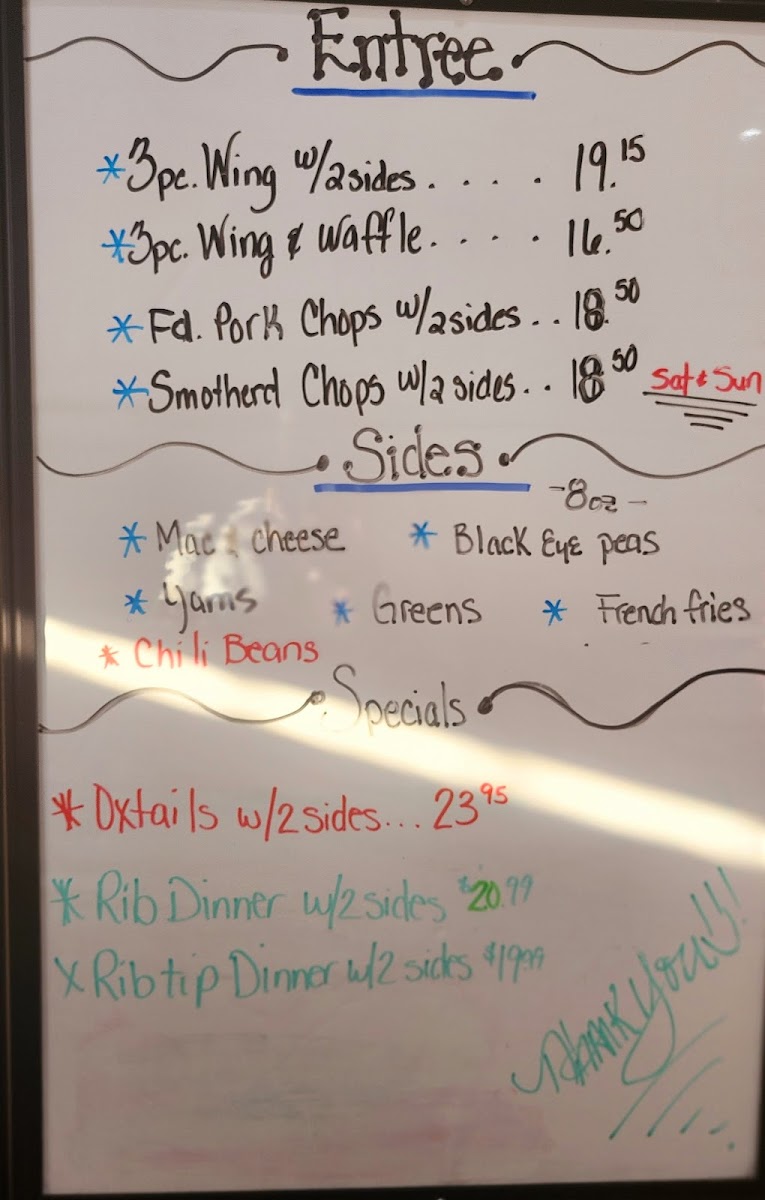 Entree
*3pc. Wing w/2sides . . . . 19.15
*3pc. Wing & Waffle. . . . 16.50
*Fd. Pork Chops w/2sides . . 18.50
*Smotherd Chops w/2 sides. . 18 50 Sat & Sun
Sides
-8oz-
* Mac & cheese * Black Eye peas
* Yams * Greens * French fries
* Chili Beans
Specials
* Oxtails w/2 sides... 23 95
* Rib Dinner w/2 sides $20.99
x Rib tip Dinner w/2 sides $19.99
Thank You!!